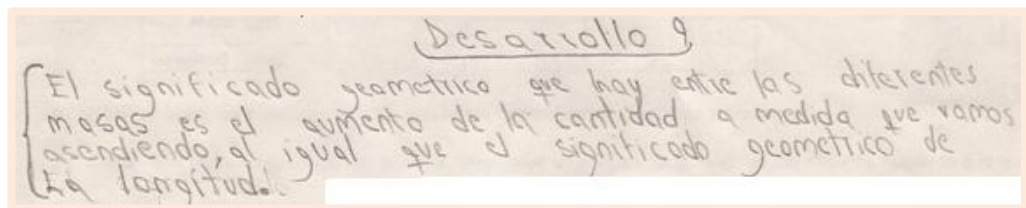 Desarrollo 9
El significado geometrico que hay entre las diferentes
masas es el aumento de la cantidad a medida que vamos
asendiendo, al igual que el significado geometrico de
La longitud.